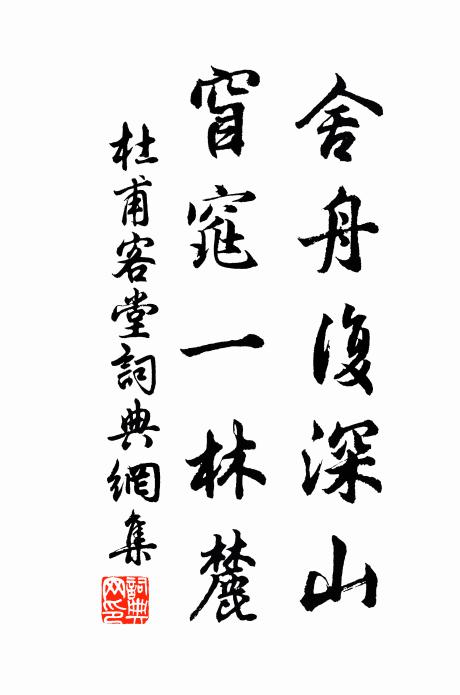 舍舟復深山
窅窕一林麓
杜甫客堂詞典網集
詞典網印